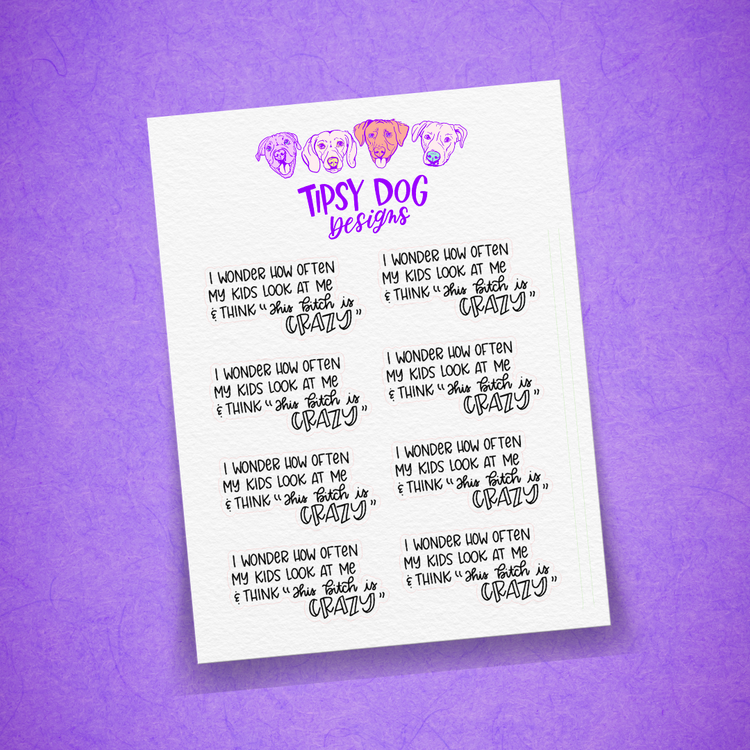 TIPSY DOG
Designs
I WONDER HOW OFTEN
MY KIDS LOOK AT ME
& THINK "this bitch is
CRAZY"
I WONDER HOW OFTEN
MY KIDS LOOK AT ME
& THINK "this bitch is
CRAZY"
I WONDER HOW OFTEN
MY KIDS LOOK AT ME
& THINK "this bitch is
CRAZY"
I WONDER HOW OFTEN
MY KIDS LOOK AT ME
& THINK "this bitch is
CRAZY"
I WONDER HOW OFTEN
MY KIDS LOOK AT ME
& THINK "this bitch is
CRAZY"
I WONDER HOW OFTEN
MY KIDS LOOK AT ME
& THINK "this bitch is
CRAZY"
I WONDER HOW OFTEN
MY KIDS LOOK AT ME
& THINK "this bitch is
CRAZY"
I WONDER HOW OFTEN
MY KIDS LOOK AT ME
& THINK "this bitch is
CRAZY"